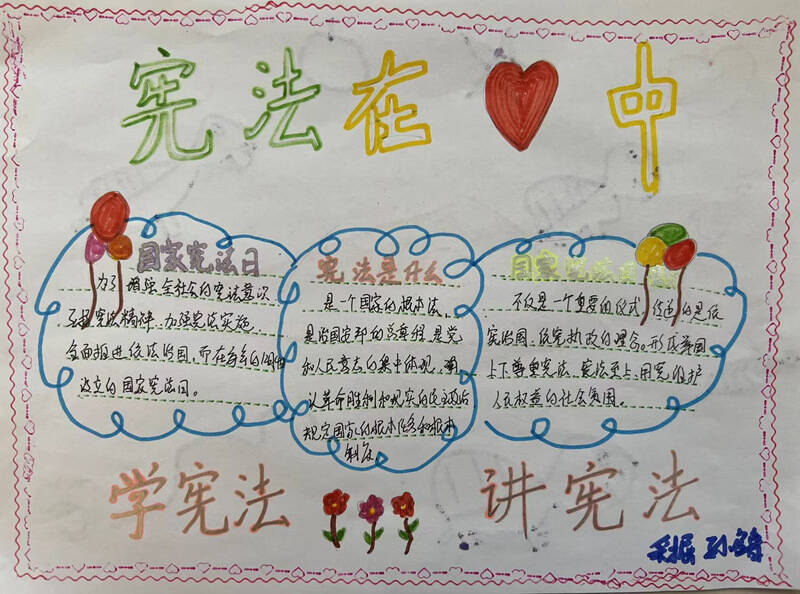 宪法在 中
国家宪法日
为了增强全社会的宪法意识
宪法精神 加强宪法实施
全面推进依法治国。而在
设立的国家宪法日。
宪法是什么
是一个国家的根本法
是治国安邦的总章程 是党
和人民意志的集中体现
认革命胜利和现实的民主政治
规定国家的根本任务和根本
制度
国家宪法日
不仅是一个重要的仪式 传递的是依
宪治国、依宪执政的理念。形成举国
上下尊重宪法 宪法至上 用宪维护
人民权益的社会氛围。
学宪法 讲宪法